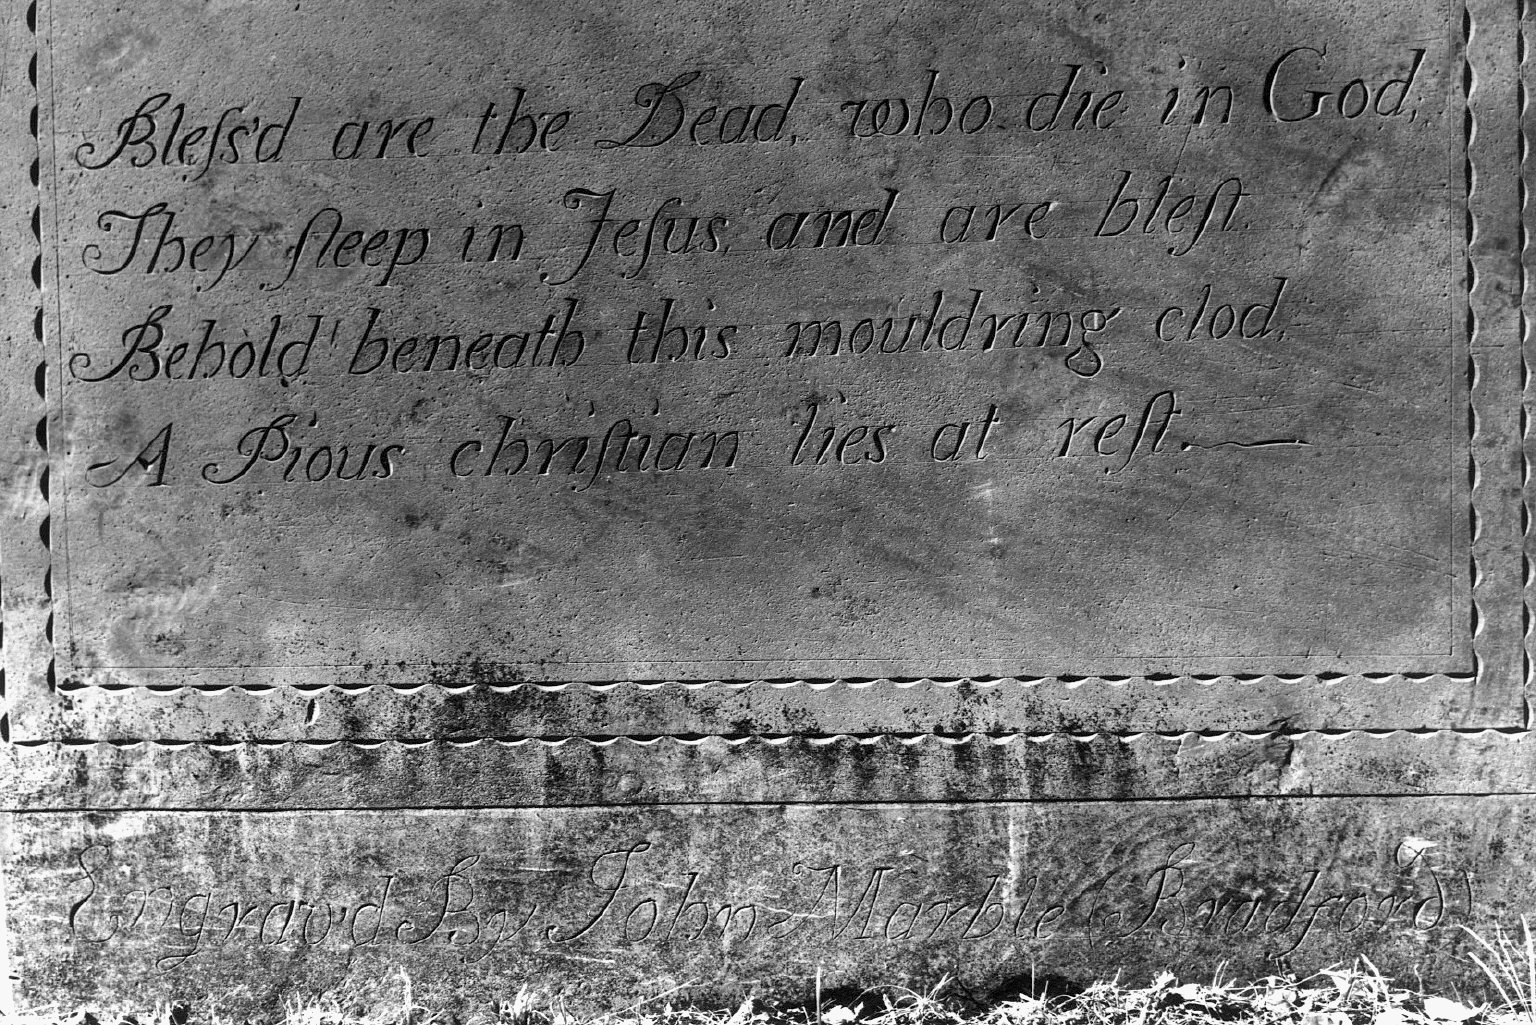 Bleſs'd are the Dead, who die in God;
They ſleep in Jeſus, and are bleſt.
Behold! beneath this mould'ring clod,
A Pious chriſtian lies at reſt.—
Engrav'd By John Marble (Bradford)